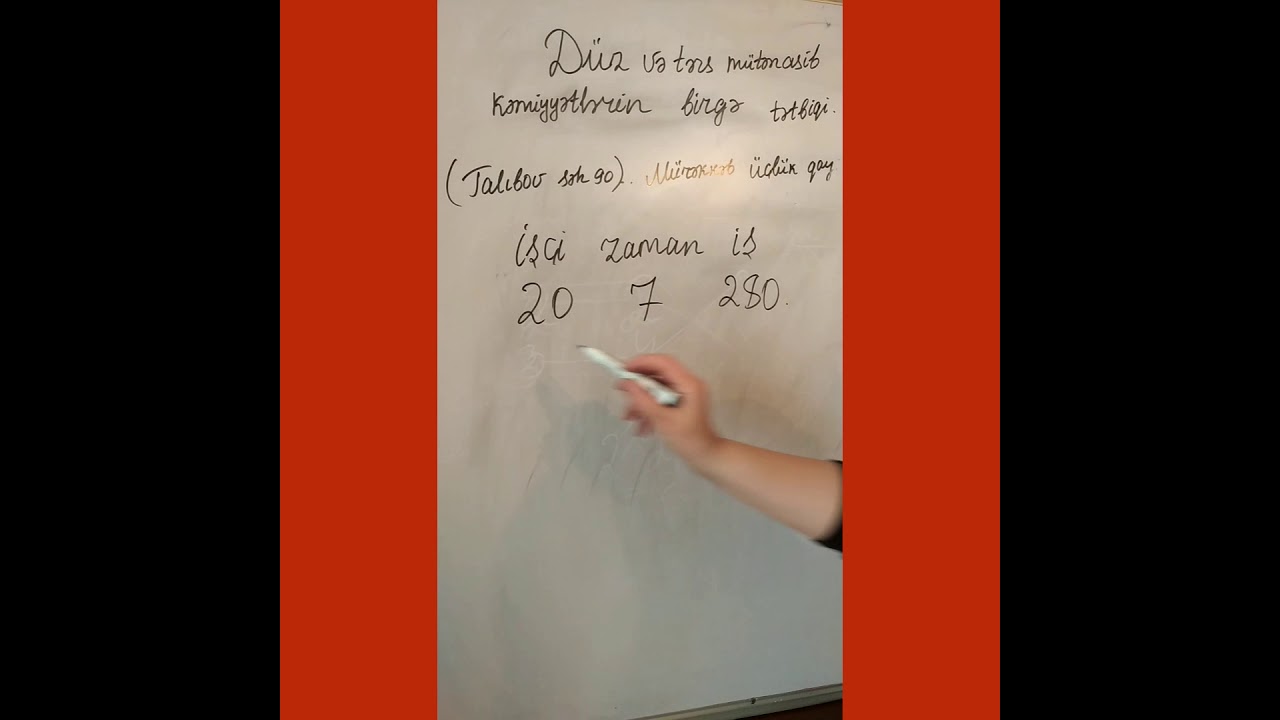 Düz və tərs mütənasib
kəmiyyətlərin birgə tətbiqi.
(Talıbov səh 90). Mürəkkəb üçlük qay
işçi zaman iş
20 7 280.